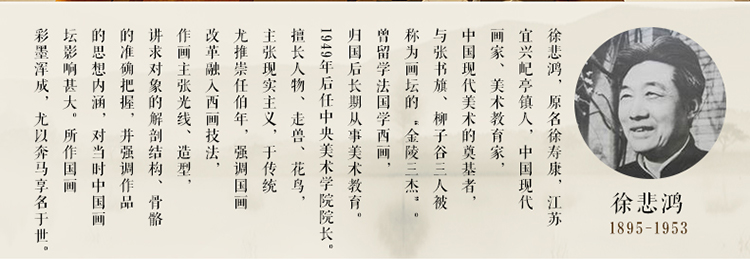 徐悲鸿，原名徐寿康，江苏
宜兴屺亭镇人，中国现代
画家、美术教育家，
中国现代美术的奠基者，
与张书旗、柳子谷三人被
称为画坛的“金陵三杰”。
曾留学法国学西画，
归国后长期从事美术教育。
1949年后任中央美术学院院长。
擅长人物、走兽、花鸟，
主张现实主义，于传统
尤推崇任伯年，强调国画
改革融入西画技法，
作画主张光线、造型，
讲求对象的解剖结构、骨骼
的准确把握，并强调作品
的思想内涵，对当时中国画
坛影响甚大。所作国画
彩墨浑成，尤以奔马享名于世。
徐悲鸿
1895-1953